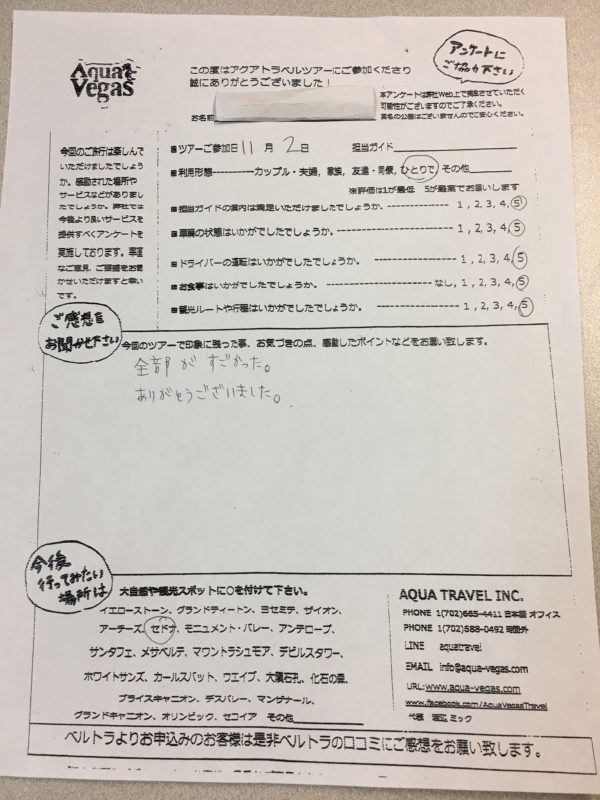 Aqua Vegas
この度はアクアトラベルツアーにご参加くださり
誠にありがとうございました！
アンケートに
ご協力下さい
お名前
本アンケートは弊社Web上で掲載させていただく
可能性がございますのでご了承ください。
実名の公表はございませんのでご安心ください。
今回のご旅行は楽しんで
いただけましたでしょう
か。感動された場所や
サービスなどがありまし
たでしょうか。弊社では
今後より良いサービスを
提供すべくアンケートを
実施しております。率直
なご意見、ご要望をお聞
かせいただけますと幸い
です。
■ツアーご参加日 11 月 2 日 担当ガイド
■利用形態------------カップル・夫婦, 家族, 友達・同僚, ひとりで, その他
※評価は1が最低 5が最高でお願いします
■担当ガイドの案内は満足いただけましたでしょうか。 1, 2, 3, 4, 5
■車輛の状態はいかがでしたでしょうか。 1, 2, 3, 4, 5
■ドライバーの運転はいかがでしたでしょうか。 1, 2, 3, 4, 5
■お食事はいかがでしたでしょうか。 なし, 1, 2, 3, 4, 5
■観光ルートや行程はいかがでしたでしょうか。 1, 2, 3, 4, 5
ご感想を
お聞かせ下さい
今回のツアーで印象に残った事、お気づきの点、感動したポイントなどをお願い致します。
全部が すごかった。
ありがとうございました。
今後
行ってみたい
場所は
大自然や観光スポットに○を付けて下さい。
イエローストーン、グランドティートン、ヨセミテ、ザイオン、
アーチーズ、セドナ、モニュメント・バレー、アンテロープ、
サンタフェ、メサベルデ、マウントラシュモア、デビルスタワー、
ホワイトサンズ、カールスバット、ウエイブ、大鍾石孔、化石の森、
ブライスキャニオン、デスバレー、マンザナール、
グランドキャニオン、オリンピック、セコイア その他
AQUA TRAVEL INC.
PHONE 1(702)665-4411 日本語 オフィス
PHONE 1(702)588-0492 時間外
LINE aquatravel
EMAIL info@aqua-vegas.com
URL:www.aqua-vegas.com
www.facebook.com/AquaVegasTravel
代表 渡辺 ミック
ベルトラよりお申込みのお客様は是非ベルトラの口コミにご感想をお願い致します。